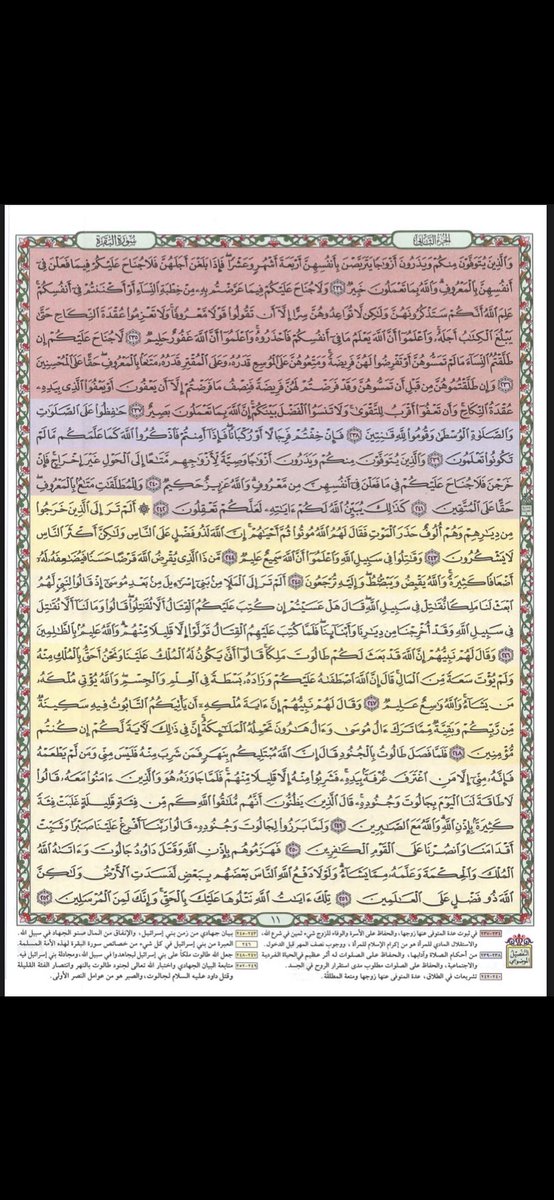 الجزء الثاني
سورة البقرة
والذين يتوفون منكم ويذرون أزواجا يتربصن بأنفسهن أربعة أشهر وعشرا فإذا بلغن أجلهن فلا جناح عليكم فيما فعلن في
أنفسهن بالمعروف والله بما تعملون خبير ٢٣٤ ولا جناح عليكم فيما عرضتم به من خطبة النساء أو أكننتم في أنفسكم
علم الله أنكم ستذكرونهن ولكن لا تواعدوهن سرا إلا أن تقولوا قولا معروفا ولا تعزموا عقدة النكاح حتى
يبلغ الكتاب أجله واعلموا أن الله يعلم ما في أنفسكم فاحذروه واعلموا أن الله غفور حليم ٢٣٥ لا جناح عليكم إن
طلقتم النساء ما لم تمسوهن أو تفرضوا لهن فريضة ومتعوهن على الموسع قدره وعلى المقتر قدره متاعا بالمعروف حقا على المحسنين
٢٣٦ وإن طلقتموهن من قبل أن تمسوهن وقد فرضتم لهن فريضة فنصف ما فرضتم إلا أن يعفون أو يعفوا الذي بيده
عقدة النكاح وأن تعفوا أقرب للتقوى ولا تنسوا الفضل بينكم إن الله بما تعملون بصير ٢٣٧ حافظوا على الصلوات
والصلاة الوسطى وقوموا لله قانتين ٢٣٨ فإن خفتم فرجالا أو ركبانا فإذا أمنتم فاذكروا الله كما علمكم ما لم
تكونوا تعلمون ٢٣٩ والذين يتوفون منكم ويذرون أزواجا وصية لأزواجهم متاعا إلى الحول غير إخراج فإن
خرجن فلا جناح عليكم في ما فعلن في أنفسهن من معروف والله عزيز حكيم ٢٤٠ وللمطلقات متاع بالمعروف
حقا على المتقين ٢٤١ كذلك يبين الله لكم آياته لعلكم تعقلون ٢٤٢ ۞ ألم تر إلى الذين خرجوا
من ديارهم وهم ألوف حذر الموت فقال لهم الله موتوا ثم أحياهم إن الله لذو فضل على الناس ولكن أكثر الناس
لا يشكرون ٢٤٣ وقاتلوا في سبيل الله واعلموا أن الله سميع عليم ٢٤٤ من ذا الذي يقرض الله قرضا حسنا فيضاعفه له
أضعافا كثيرة والله يقبض ويبصط وإليه ترجعون ٢٤٥ ألم تر إلى الملإ من بني إسرائيل من بعد موسى إذ قالوا لنبي لهم
ابعث لنا ملكا نقاتل في سبيل الله قال هل عسيتم إن كتب عليكم القتال ألا تقاتلوا قالوا وما لنا ألا نقاتل
في سبيل الله وقد أخرجنا من ديارنا وأبنائنا فلما كتب عليهم القتال تولوا إلا قليلا منهم والله عليم بالظالمين
٢٤٦ وقال لهم نبيهم إن الله قد بعث لكم طالوت ملكا قالوا أنى يكون له الملك علينا ونحن أحق بالملك منه
ولم يؤت سعة من المال قال إن الله اصطفاه عليكم وزاده بسطة في العلم والجسم والله يؤتي ملكه
من يشاء والله واسع عليم ٢٤٧ وقال لهم نبيهم إن آية ملكه أن يأتيكم التابوت فيه سكينة
من ربكم وبقية مما ترك آل موسى وآل هارون تحمله الملائكة إن في ذلك لآية لكم إن كنتم
مؤمنين ٢٤٨ فلما فصل طالوت بالجنود قال إن الله مبتليكم بنهر فمن شرب منه فليس مني ومن لم يطعمه
فإنه مني إلا من اغترف غرفة بيده فشربوا منه إلا قليلا منهم فلما جاوزه هو والذين آمنوا معه قالوا
لا طاقة لنا اليوم بجالوت وجنوده قال الذين يظنون أنهم ملاقوا الله كم من فئة قليلة غلبت فئة
كثيرة بإذن الله والله مع الصابرين ٢٤٩ ولما برزوا لجالوت وجنوده قالوا ربنا أفرغ علينا صبرا وثبت
أقدامنا وانصرنا على القوم الكافرين ٢٥٠ فهزموهم بإذن الله وقتل داوود جالوت وآتاه الله
الملك والحكمة وعلمه مما يشاء ولولا دفع الله الناس بعضهم ببعض لفسدت الأرض ولكن
الله ذو فضل على العالمين ٢٥١ تلك آيات الله نتلوها عليك بالحق وإنك لمن المرسلين ٢٥٢
١١
التفصيل الموضوعي
٢٣٤-٢٣٧ في ثبوت عدة المتوفى عنها زوجها، والحفاظ على الأسرة والوفاء للزوج شيء ثمين في شرع الله،
والاستقلال المادي للمرأة هو من إكرام الإسلام للمرأة ، ووجوب نصف المهر قبل الدخول.
٢٣٨-٢٣٩ من أحكام الصلاة وآدابها، والحفاظ على الصلوات له أثر عظيم في الحياة الفردية
والاجتماعية، والحفاظ على الصلوات مطلوب مدى استقرار الروح في الجسد.
٢٤٠-٢٤٢ تشريعات في الطلاق، عدة المتوفى عنها زوجها ومتعة المطلقة.
٢٤٣-٢٤٥ بيان جهادي من زمن بني إسرائيل، والإنفاق من المال صنو الجهاد في سبيل الله.
٢٤٦ العبرة من بني إسرائيل في كل شيء من خصائص سورة البقرة لهذه الأمة المسلمة.
٢٤٧-٢٤٨ جعل طالوت ملكاً على بني إسرائيل ليجاهدوا في سبيل الله، ومجادلة بني إسرائيل فيه.
٢٤٩-٢٥٢ متابعة البيان الجهادي واختبار الله تعالى لجنود طالوت بالنهر وانتصار الفئة القليلة
وقتل داود عليه السلام لجالوت، والصبر هو من عوامل النصر الأولى.